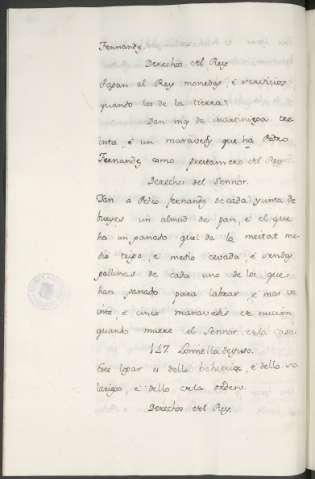 Fernandz.
Derechos del Rey
Pagan al Rey monedas, e servicios
quando los de la tierra.
Dan mas de martiniega tre
inta e un maravedis que ha Pedro
Fernandz como prestamero del Rey.
Derechos del Sennor.
Dan a Pedro Fernandz de cada yunta de
bueyes un almud de pan, e el que
ha un panado quel da la meitat me
dio trigo, e medio cevada, e sendas
pollinas de cada uno de los que
han ganado para labrar, e mas ve
inte, e cinco maravedis de
quando muere el Sennor de la casa.
147 Lomilla deyuso.
Este logar es dello behetria, e dello so
lariego, e dello de la orden.
Derechos del Rey.